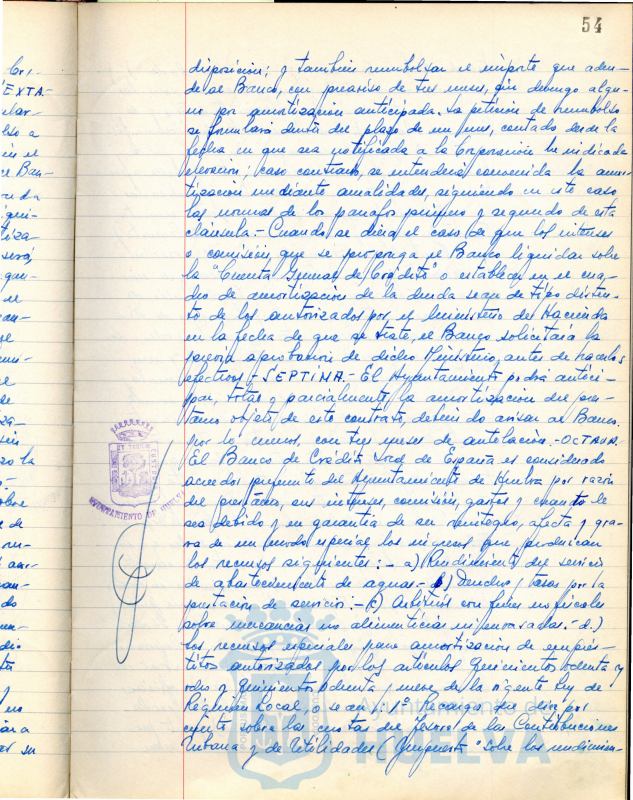 54
disposición; y también reembolsar el importe que adeu-
de al Banco, con preaviso de tres meses, sin devengo algu-
no por amortización anticipada. La petición de reembolso
se formulará dentro del plazo de un mes, contado desde la
fecha en que sea notificada a la Corporación la indicada
elevación; caso contrario, se entenderá convenida la amor-
tización mediante anualidades, siguiendo en este caso
las normas de los párrafos primero y segundo de esta
cláusula.- Cuando se diera el caso de que los intereses
o comisión que se proponga el Banco liquidar sobre
la "Cuenta General de Crédito" o establecer en el cua-
dro de amortización de la deuda sean de tipo distin-
to de los autorizados por el Ministerio de Hacienda
en la fecha de que se trate, el Banco solicitará la
previa aprobación de dicho Ministerio, antes de hacerlos
efectivos.- SEPTIMA.- El Ayuntamiento podrá antici-
par, total y parcialmente, la amortización del prés-
tamo objeto de este contrato, debiendo avisar al Banco,
por lo menos, con tres meses de antelación.- OCTAVA.-
El Banco de Crédito Local de España es considerado
acreedor preferente del Ayuntamiento de Huelva por razón
del préstamo, sus intereses, comisión, gastos y cuanto le
sea debido y en garantía de su reintegro, afecta y gra-
va de un modo especial los ingresos que produzcan
los recursos siguientes:- a) Rendimiento del servicio
de abastecimiento de aguas.- b) Derechos y tasas por la
prestación de servicio.- c) Arbitrios con fines no fiscales
sobre mercancías no alimenticias ni envasadas.- d.)
los recursos especiales para amortización de emprés-
titos autorizados por los artículos quinientos ochenta y
ocho y quinientos ochenta y nueve de la vigente Ley de
Régimen Local, o sean, 1º Recargo del diez por
ciento sobre las cuotas del Tesoro de las Contribuciones
Urbana y de Utilidades (Impuesto "sobre los rendimien-
AYUNTAMIENTO DE HUELVA
Ayuntamiento de
HUELVA